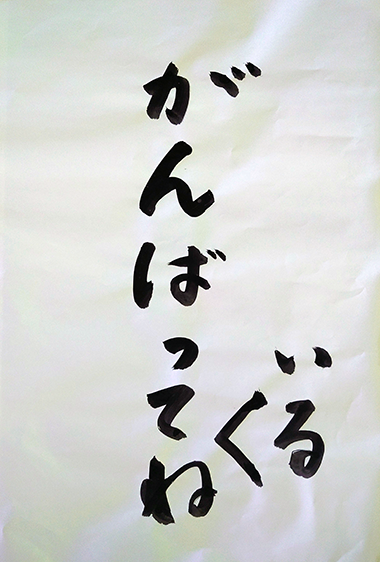 いる
く
がんばってね